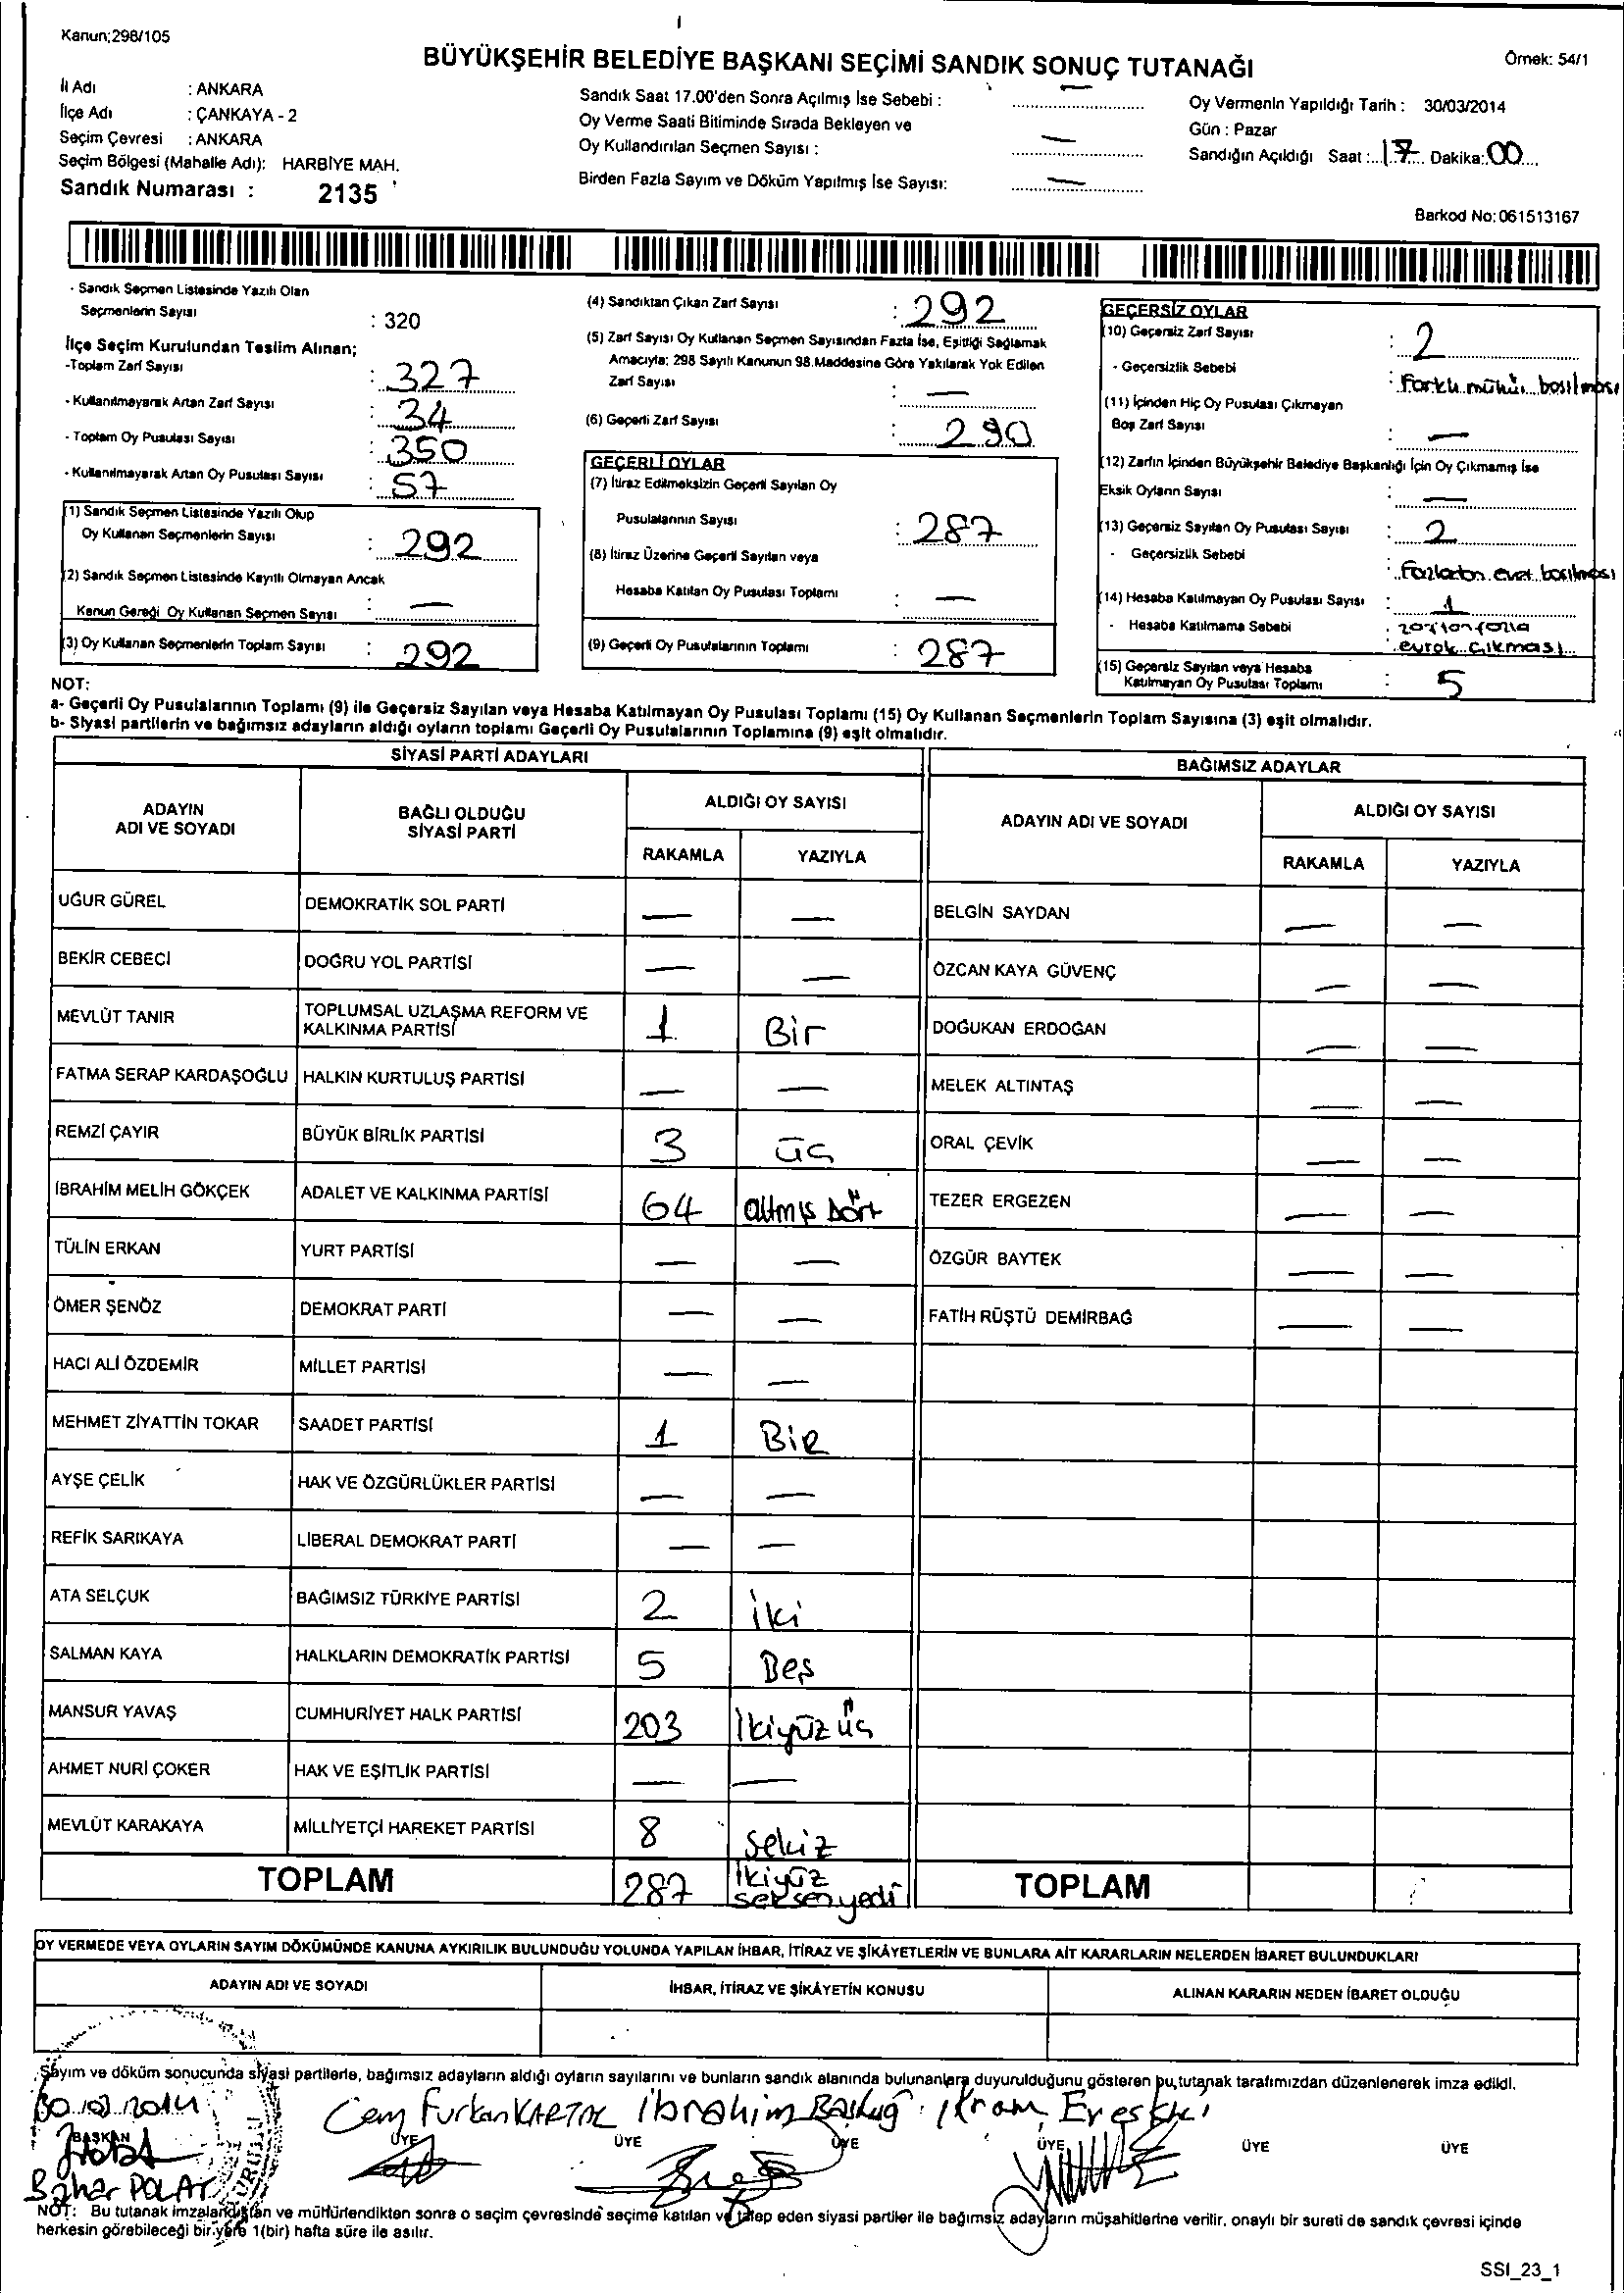 Kanun;298/105
BÜYÜKŞEHİR BELEDİYE BAŞKANI SEÇİMİ SANDIK SONUÇ TUTANAĞI
Örnek: 54/1
İl Adı : ANKARA
İlçe Adı : ÇANKAYA - 2
Seçim Çevresi : ANKARA
Seçim Bölgesi (Mahalle Adı): HARBİYE MAH.
Sandık Numarası : 2135
Sandık Saat 17.00'den Sonra Açılmış İse Sebebi : —
Oy Verme Saati Bitiminde Sırada Bekleyen ve
Oy Kullandırılan Seçmen Sayısı : —
Birden Fazla Sayım ve Döküm Yapılmış İse Sayısı: —
Oy Vermenin Yapıldığı Tarih : 30/03/2014
Gün : Pazar
Sandığın Açıldığı Saat :..17.. Dakika:.00...
Barkod No:061513167
- Sandık Seçmen Listesinde Yazılı Olan
Seçmenlerin Sayısı : 320
İlçe Seçim Kurulundan Teslim Alınan;
-Toplam Zarf Sayısı : 327
- Kullanılmayarak Artan Zarf Sayısı : 34
- Toplam Oy Pusulası Sayısı : 350
- Kullanılmayarak Artan Oy Pusulası Sayısı : 57
(1) Sandık Seçmen Listesinde Yazılı Olup
Oy Kullanan Seçmenlerin Sayısı : 292
(2) Sandık Seçmen Listesinde Kayıtlı Olmayan Ancak
Kanun Gereği Oy Kullanan Seçmen Sayısı : —
(3) Oy Kullanan Seçmenlerin Toplam Sayısı : 292
(4) Sandıktan Çıkan Zarf Sayısı : 292
(5) Zarf Sayısı Oy Kullanan Seçmen Sayısından Fazla İse, Eşitliği Sağlamak
Amacıyla; 298 Sayılı Kanunun 98.Maddesine Göre Yakılarak Yok Edilen
Zarf Sayısı : —
(6) Geçerli Zarf Sayısı : 290
GEÇERLİ OYLAR
(7) İtiraz Edilmeksizin Geçerli Sayılan Oy
Pusulalarının Sayısı : 287
(8) İtiraz Üzerine Geçerli Sayılan veya
Hesaba Katılan Oy Pusulası Toplamı : —
(9) Geçerli Oy Pusulalarının Toplamı : 287
GEÇERSİZ OYLAR
(10) Geçersiz Zarf Sayısı : 2
- Geçersizlik Sebebi : Farklı mühür basılması
(11) İçinden Hiç Oy Pusulası Çıkmayan
Boş Zarf Sayısı : —
(12) Zarfın İçinden Büyükşehir Belediye Başkanlığı İçin Oy Çıkmamış İse
Eksik Oyların Sayısı : —
(13) Geçersiz Sayılan Oy Pusulası Sayısı : 2
- Geçersizlik Sebebi : Fazladan evet basılması
(14) Hesaba Katılmayan Oy Pusulası Sayısı : 1
- Hesaba Katılmama Sebebi :
evrak çıkması
(15) Geçersiz Sayılan veya Hesaba
Katılmayan Oy Pusulası Toplamı : 5
NOT:
a- Geçerli Oy Pusulalarının Toplamı (9) ile Geçersiz Sayılan veya Hesaba Katılmayan Oy Pusulası Toplamı (15) Oy Kullanan Seçmenlerin Toplam Sayısına (3) eşit olmalıdır.
b- Siyasi partilerin ve bağımsız adayların aldığı oyların toplamı Geçerli Oy Pusulalarının Toplamına (9) eşit olmalıdır.
SİYASİ PARTİ ADAYLARI
ADAYIN ADI VE SOYADI BAĞLI OLDUĞU SİYASİ PARTİ ALDIĞI OY SAYISI
RAKAMLA YAZIYLA
UĞUR GÜREL DEMOKRATİK SOL PARTİ — —
BEKİR CEBECİ DOĞRU YOL PARTİSİ — —
MEVLÜT TANIR TOPLUMSAL UZLAŞMA REFORM VE KALKINMA PARTİSİ 1 Bir
FATMA SERAP KARDAŞOĞLU HALKIN KURTULUŞ PARTİSİ — —
REMZİ ÇAYIR BÜYÜK BİRLİK PARTİSİ 3 üç
İBRAHİM MELİH GÖKÇEK ADALET VE KALKINMA PARTİSİ 64 altmış Dört
TÜLİN ERKAN YURT PARTİSİ — —
ÖMER ŞENÖZ DEMOKRAT PARTİ — —
HACI ALİ ÖZDEMİR MİLLET PARTİSİ — —
MEHMET ZİYATTİN TOKAR SAADET PARTİSİ 1 BİR
AYŞE ÇELİK HAK VE ÖZGÜRLÜKLER PARTİSİ — —
REFİK SARIKAYA LİBERAL DEMOKRAT PARTİ — —
ATA SELÇUK BAĞIMSIZ TÜRKİYE PARTİSİ 2 iki
SALMAN KAYA HALKLARIN DEMOKRATİK PARTİSİ 5 Beş
MANSUR YAVAŞ CUMHURİYET HALK PARTİSİ 203 İkiyüz üç
AHMET NURİ ÇOKER HAK VE EŞİTLİK PARTİSİ — —
MEVLÜT KARAKAYA MİLLİYETÇİ HAREKET PARTİSİ 8 Sekiz
TOPLAM 287 İkiyüz seksenyedi
BAĞIMSIZ ADAYLAR
ADAYIN ADI VE SOYADI ALDIĞI OY SAYISI
RAKAMLA YAZIYLA
BELGİN SAYDAN — —
ÖZCAN KAYA GÜVENÇ — —
DOĞUKAN ERDOĞAN — —
MELEK ALTINTAŞ — —
ORAL ÇEVİK — —
TEZER ERGEZEN — —
ÖZGÜR BAYTEK — —
FATİH RÜŞTÜ DEMİRBAĞ — —
TOPLAM
OY VERMEDE VEYA OYLARIN SAYIM DÖKÜMÜNDE KANUNA AYKIRILIK BULUNDUĞU YOLUNDA YAPILAN İHBAR, İTİRAZ VE ŞİKÂYETLERİN VE BUNLARA AİT KARARLARIN NELERDEN İBARET BULUNDUKLARI
ADAYIN ADI VE SOYADI İHBAR, İTİRAZ VE ŞİKÂYETİN KONUSU ALINAN KARARIN NEDEN İBARET OLDUĞU
Sayım ve döküm sonucunda siyasi partilerle, bağımsız adayların aldığı oyların sayılarını ve bunların sandık alanında bulunanlara duyurulduğunu gösteren bu tutanak tarafımızdan düzenlenerek imza edildi.
30.03.2014 Cem Furkan KARTAL İbrahim Başbuğ İkram Eresski
BAŞKAN ÜYE ÜYE ÜYE ÜYE ÜYE ÜYE
Bahar POLAT
NOT: Bu tutanak imzalandıktan ve mühürlendikten sonra o seçim çevresinde seçime katılan ve talep eden siyasi partiler ile bağımsız adayların müşahitlerine verilir, onaylı bir sureti de sandık çevresi içinde
herkesin görebileceği bir yere 1(bir) hafta süre ile asılır.
SSI_23_1